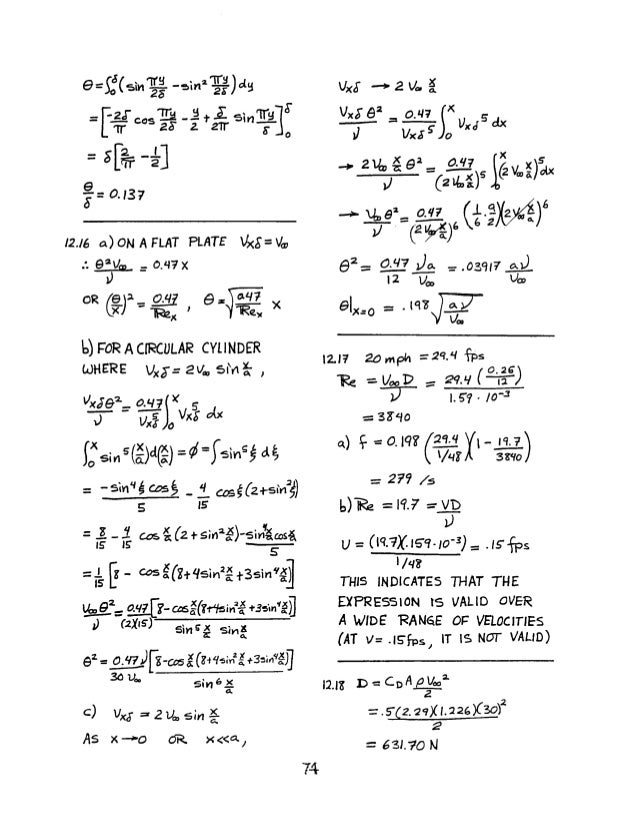 θ = ∫₀^δ (sin πy/2δ − sin² πy/2δ) dy
= [−2δ/π cos πy/2δ − y/2 + δ/2π sin πy/δ]₀^δ
= δ[2/π − 1/2]
θ/δ = 0.137
12.16 a) ON A FLAT PLATE Vxδ = V∞
∴ θ²V∞/ν = 0.47 x
OR (θ/x)² = 0.47/Rex , θ = √(0.47/Rex) x
b) FOR A CIRCULAR CYLINDER
WHERE Vxδ = 2V∞ sin x/a ,
Vxδθ²/ν = 0.47/Vxδ⁵ ∫₀^x Vxδ⁵ dx
∫₀^x sin⁵(x/a)d(x/a) = ϕ = ∫ sin⁵ξ dξ
= −sin⁴ξ cosξ/5 − 4/15 cosξ(2+sin²ξ)
= 8/15 − 4/15 cos x/a (2+sin² x/a) − sin⁴ x/a cos x/a/5
= 1/15 [8 − cos x/a (8+4sin² x/a +3sin⁴ x/a)]
V∞θ²/ν = 0.47/(2)(15) [8−cos x/a (8+4sin² x/a +3sin⁴ x/a)]/sin⁵ x/a sin x/a
θ² = 0.47 ν/30 V∞ [8−cos x/a (8+4sin² x/a +3sin⁴ x/a)]/sin⁶ x/a
c) Vxδ = 2V∞ sin x/a
AS x→0 OR x<<a,
Vxδ → 2V∞ x/a
Vxδ θ²/ν = 0.47/Vxδ⁵ ∫₀^x Vxδ⁵ dx
→ 2V∞ x/a θ²/ν = 0.47/(2V∞ x/a)⁵ ∫₀^x (2V∞ x/a)⁵ dx
→ V∞θ²/ν = 0.47/(2V∞ x/a)⁶ (1/6 · a/2)(2V∞ x/a)⁶
θ² = 0.47/12 νa/V∞ = .03917 aν/V∞
θ|x=0 = .198 √(aν/V∞)
12.17 20 mph = 29.4 fps
Re = V∞D/ν = 29.4 (0.26/12)/1.59·10⁻³
= 3840
a) f = 0.198 (29.4/1/48)(1 − 19.7/3840)
= 279 /s
b) Re = 19.7 = VD/ν
U = (19.7)(.159·10⁻³)/1/48 = .15 fps
THIS INDICATES THAT THE
EXPRESSION IS VALID OVER
A WIDE RANGE OF VELOCITIES
(AT V= .15fps, IT IS NOT VALID)
12.18 D = CD A ρV∞²/2
= .5(2.29)(1.226)(30)²/2
= 631.70 N
74